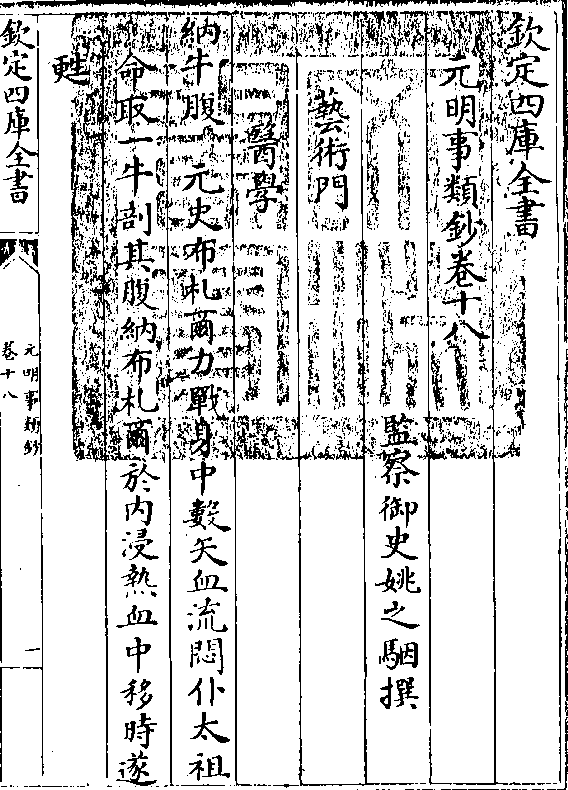 欽定四庫全書
元明事類鈔卷十八
監察御史姚之駰撰
藝術門
醫學
納牛腹 元史布札爾力戰身中數矢血流悶仆太祖
命取一牛剖其腹納布札爾於內浸熱血中移時遂
甦
欽定四庫全書
元明事類鈔
卷十八
一